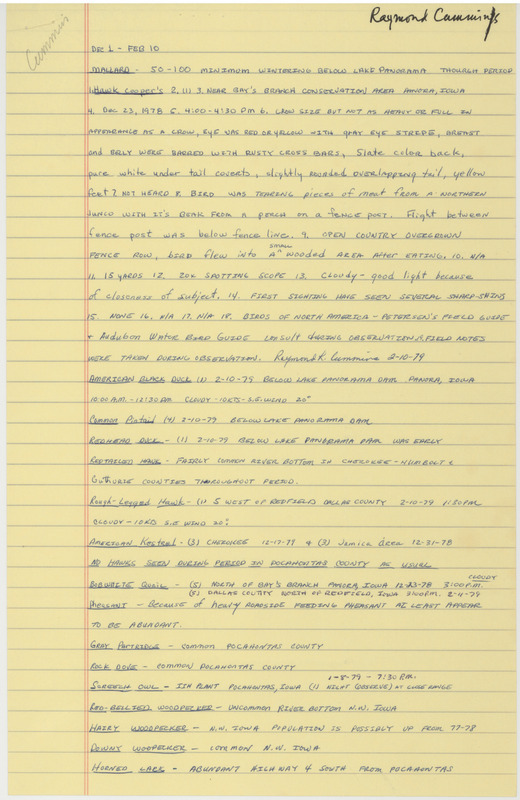 Raymond Cummings
Cummins
DEC 1 - FEB 10
MALLARD - 50-100 MINIMUM WINTERING BELOW LAKE PANORAMA THOURGH PERIOD
1. HAWK COOPER'S 2. (1) 3. NEAR BAY'S BRANCH CONSERVATION AREA PANORA, IOWA
4. DEC 23, 1978 5. 4:00-4:30 PM 6. CROW SIZE BUT NOT AS HEAVY OR FULL IN
APPEARANCE AS A CROW, EYE WAS RED OR YELLOW WITH GRAY EYE STRIPE, BREAST
and BELLY WERE BARRED WITH RUSTY CROSS BARS, Slate color back,
pure white under tail coverts, slightly rounded overlapping tail, yellow
feet 7. NOT HEARD 8. BIRD WAS TEARING pieces of meat from a NORTHERN
JUNCO WITH IT'S BEAK FROM A PERCH ON a fence post. Flight between
fence post was below fence line. 9. OPEN COUNTRY OVERGROWN
FENCE ROW, bird flew into A SMALL WOODED AREA AFTER EATING. 10. N/A
11. 15 YARDS 12. 20X SPOTTING SCOPE 13. Cloudy - good light because
of closeness of subject. 14. FIRST SIGHTING HAVE SEEN SEVERAL SHARP-SHINS
15. NONE 16. N/A 17. N/A 18. BIRDS OF NORTH AMERICA - PETERSEN'S FIELD GUIDE
& Audubon Water Bird GUIDE DURING OBSERVATION 19. FIELD NOTES
WERE TAKEN DURING OBSERVATION. Raymond K. Cummins 2-10-79
AMERICAN BLACK DUCK (1) 2-10-79 BELOW LAKE PANORAMA DAM PANORA, IOWA
10:00 A.M. - 12:30 PM CLOUDY - 10 KTS - S.E. WIND 20°
Common Pintail (4) 2-10-79 BELOW LAKE PANORAMA DAM
REDHEAD DUCK - (1) 2-10-79 BELOW LAKE PANORAMA DAM WAS EARLY
REDTAILED HAWK - FAIRLY COMMON RIVER BOTTOM IN CHEROKEE - HUMBOLT &
GUTHURIE COUNTIES THOROUGHOUT PERIOD.
Rough-Legged Hawk - (1) 5 WEST OF REDFIELD DALLAS COUNTY 2-10-79 1:30 PM
CLOUDY - 10 KTS S.E WIND 20°
AMERICAN Kestrel - (3) CHEROKEE 12-17-79 & (3) Jamica Area 12-31-78
NO HAWKS SEEN DURING PERIOD IN POCAHONTAS COUNTY AS USUAL
BOBWHITE QUAIL - (5) NORTH OF BAY'S BRANCH PANORA, IOWA 12-23-78 3:00 P.M. CLOUDY
(5) DALLAS COUNTY NORTH OF REDFIELD, IOWA 3:00 P.M. 2-4-79
PHEASANT - Because of Heavy ROADSIDE FEEDING PHEASANT AT LEAST APPEAR
TO BE ABUNDANT.
GRAY PARTRIDGE - COMMON POCAHONTAS COUNTY
ROCK DOVE - COMMON POCAHONTAS COUNTY
1-8-79 - 7:30 P.M.
SCREECH OWL - PLANT POCAHONTAS, IOWA (1) NIGHT (OBSERVE) AT CLOSE RANGE
RED-BELLIED WOODPECKER - UNCOMMON RIVER BOTTOM N.W. IOWA
HAIRY WOODPECKER - N.W. IOWA POPULATION IS POSSIBLY UP FROM 77-78
DOWNY WOOPECKER - COMMON N.W. IOWA
HORNED LARK - ABUNDANT HIGHWAY 4 SOUTH FROM POCAHONTAS